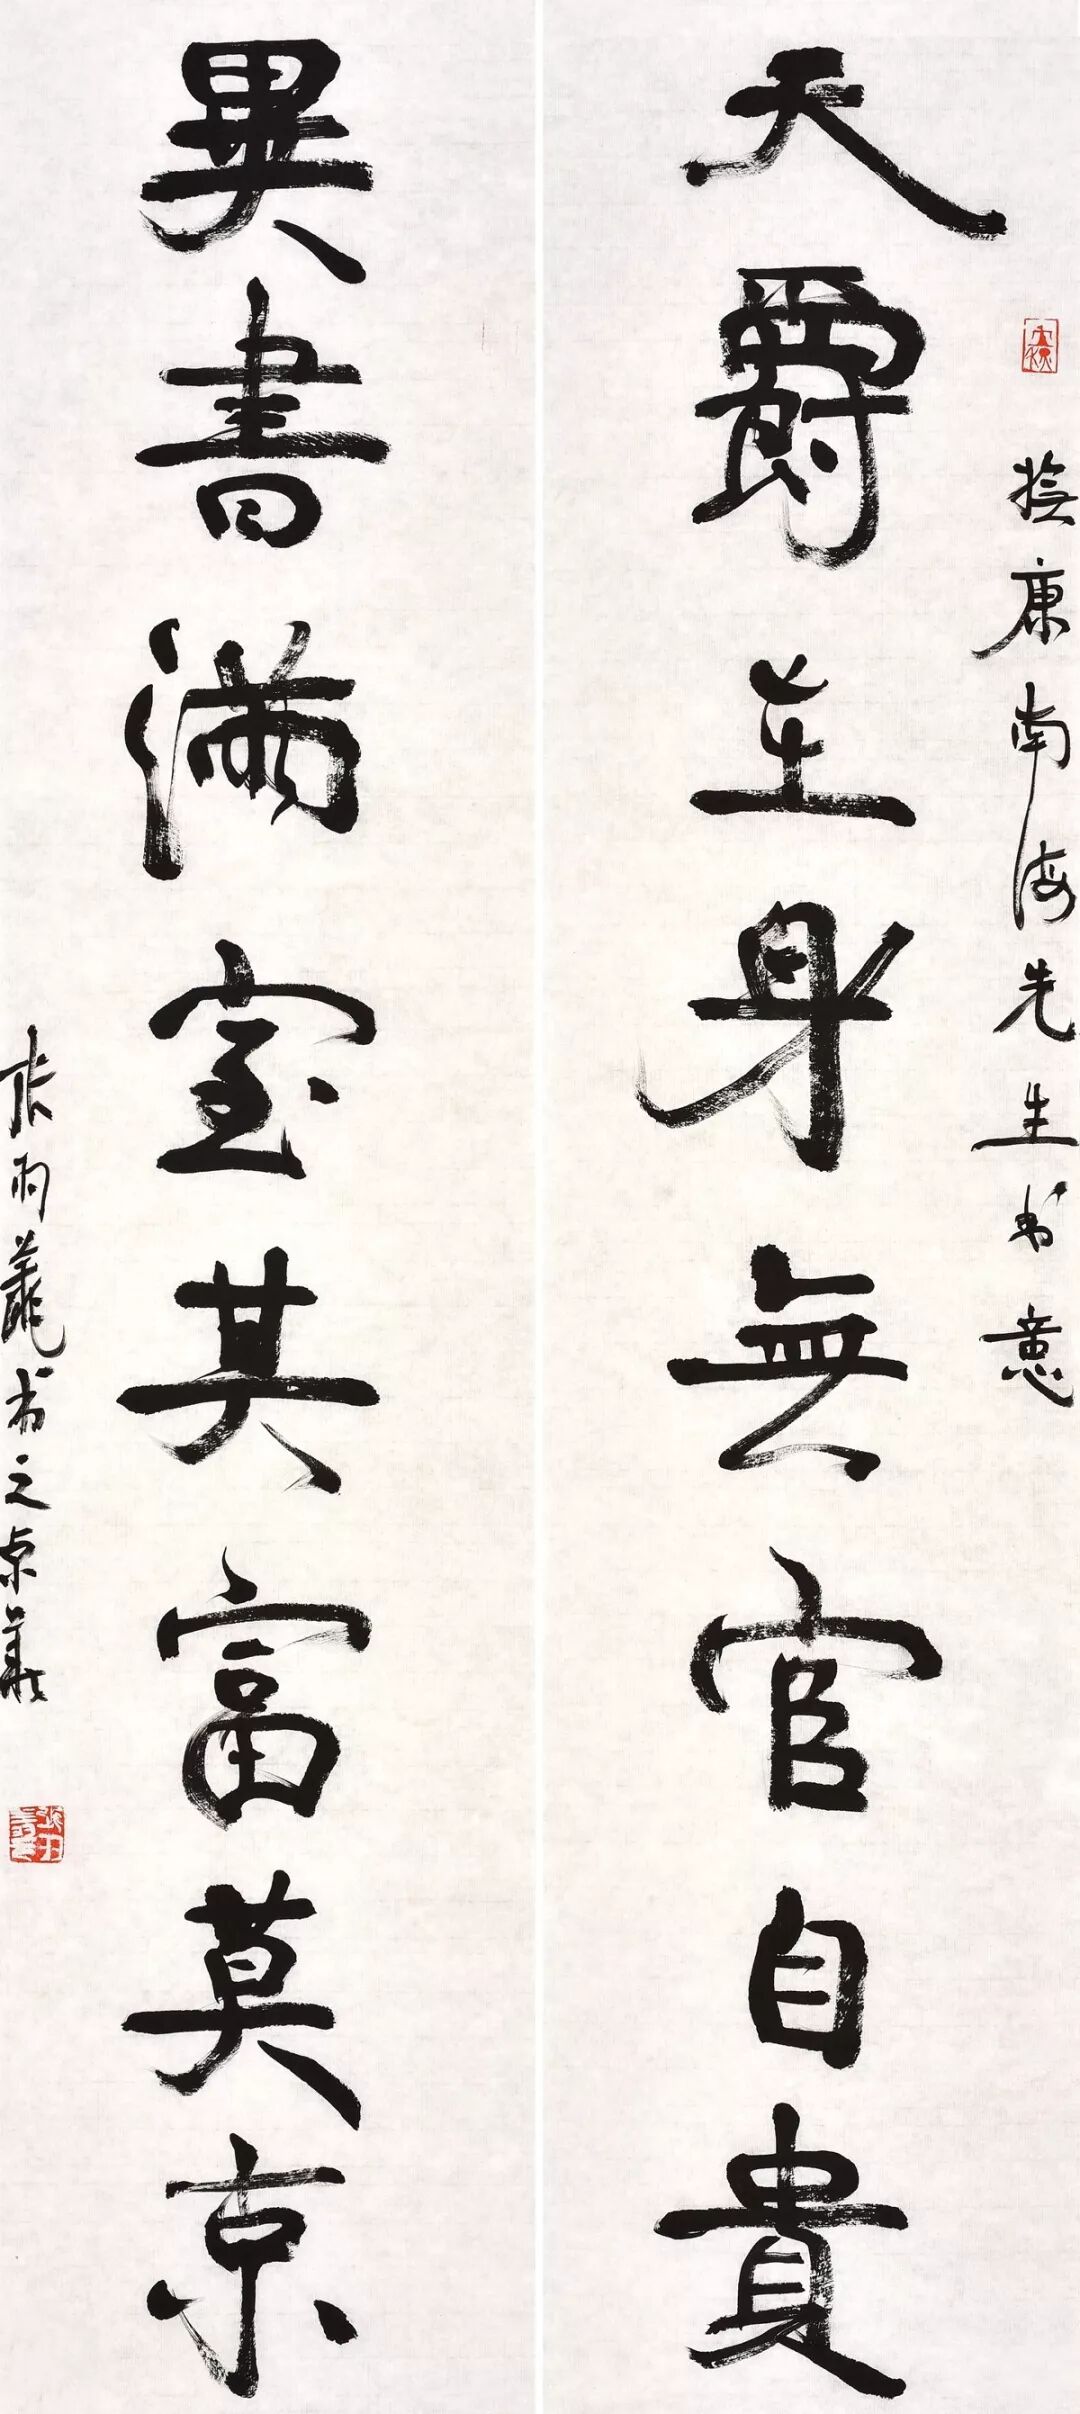 康南海先生书意
天爵在身無官自貴
異書滿室其富莫京
张书之京華